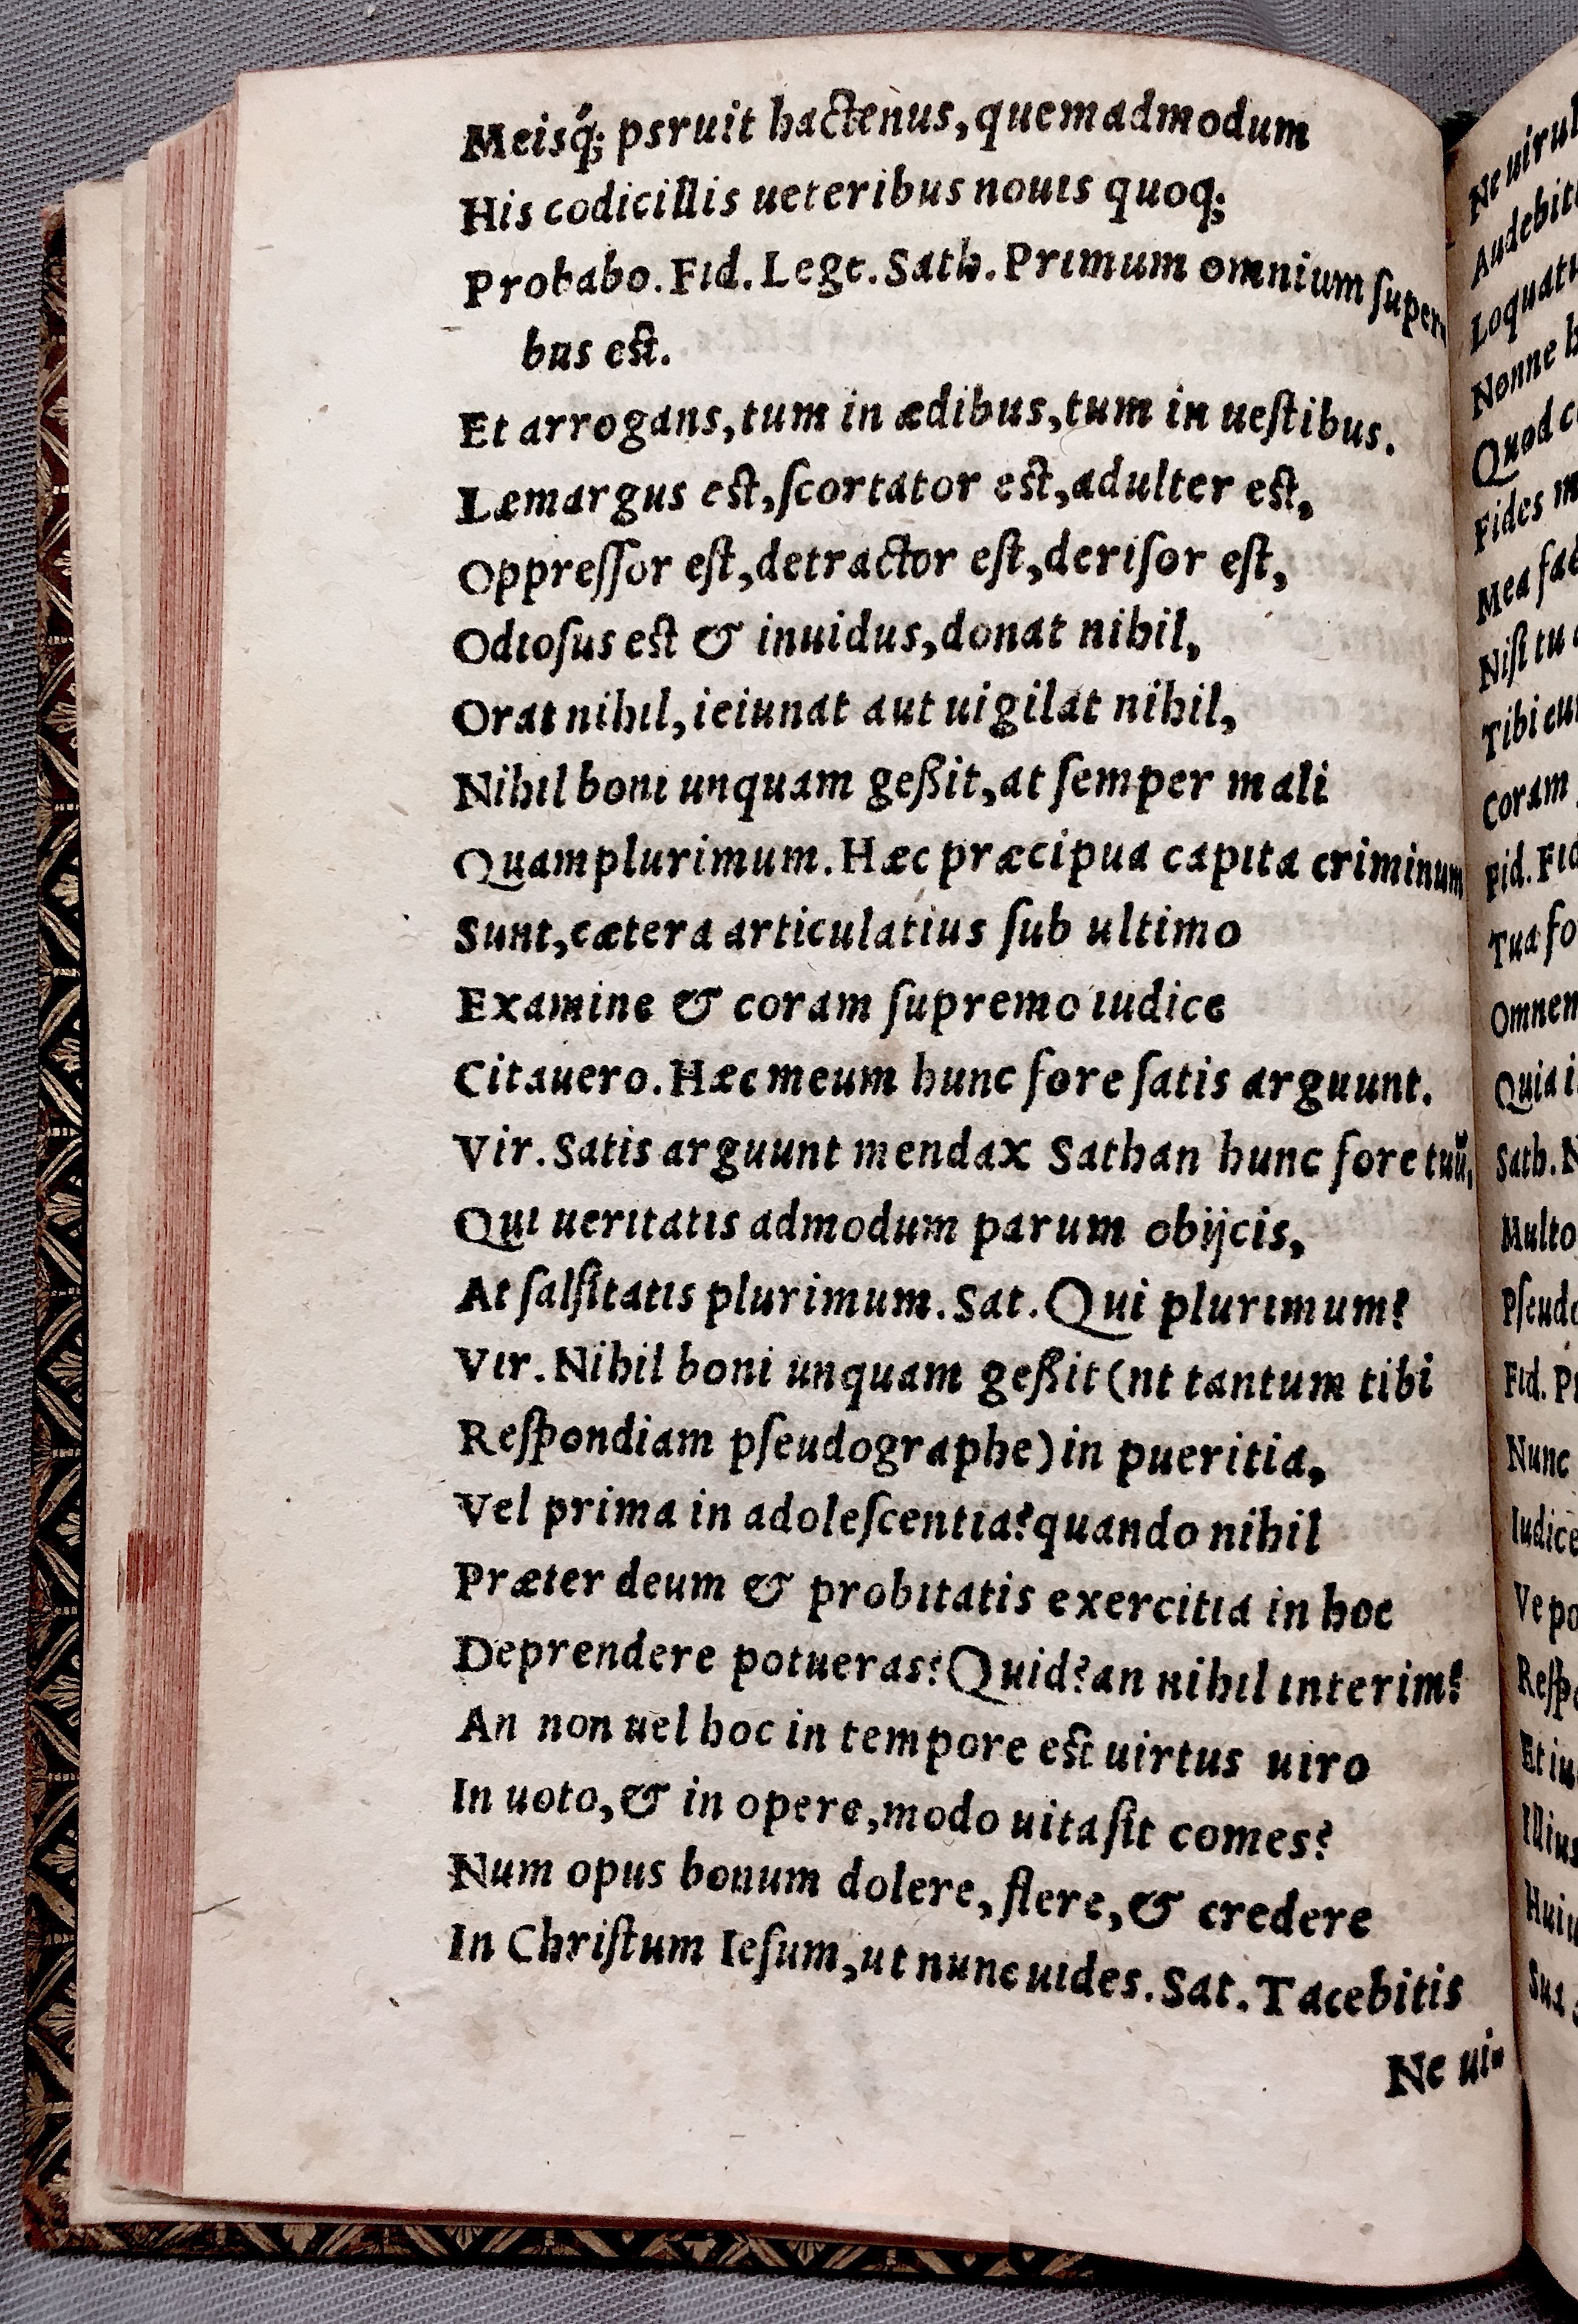 Meisq́; psruit hactenus, quemadmodum
His codicillis ueteribus nouis quoq;
Probabo. Fid. Lege. Sath. Primum omnium super
bus est.
Et arrogans, tum in ædibus, tum in uestibus.
Læmargus est, scortator est, adulter est,
Oppressor est, detractor est, derisor est,
Odiosus est & inuidus, donat nihil,
Orat nihil, ieiunat aut uigilat nihil,
Nihil boni unquam geßit, at semper mali
Quamplurimum. Hæc præcipua capita criminum
Sunt, cætera articulatius sub ultimo
Examine & coram supremo iudice
Citauero. Hæc meum hunc fore satis arguunt.
Vir. Satis arguunt mendax Sathan hunc fore tuū,
Qui ueritatis admodum parum obijcis,
At falsitatis plurimum. Sat. Qui plurimum?
Vir. Nihil boni unquam geßit (nt tantum tibi
Respondiam pseudographe) in pueritia,
Vel prima in adolescentia? quando nihil
Præter deum & probitatis exercitia in hoc
Deprendere potueras? Quid? an nihil interim?
An non uel hoc in tempore est uirtus uiro
In uoto, & in opere, modo uita sit comes?
Num opus bonum dolere, flere, & credere
In Christum Iesum, ut nunc uides. Sat. Tacebitis
Ne ui-
Ne uirul
Audebit
Loquatu
Nonne h
Quod c
Fides m
Mea fac
Nisi tu
Tibi cu
Coram
Fid. Fid
Tua fo
Omnem
Quia i
Sath. N
Multo
Pseudo
Fid. Pr
Nunc
Iudice
Ve po
Respo
Et iu
Illius
Huiu
Sua